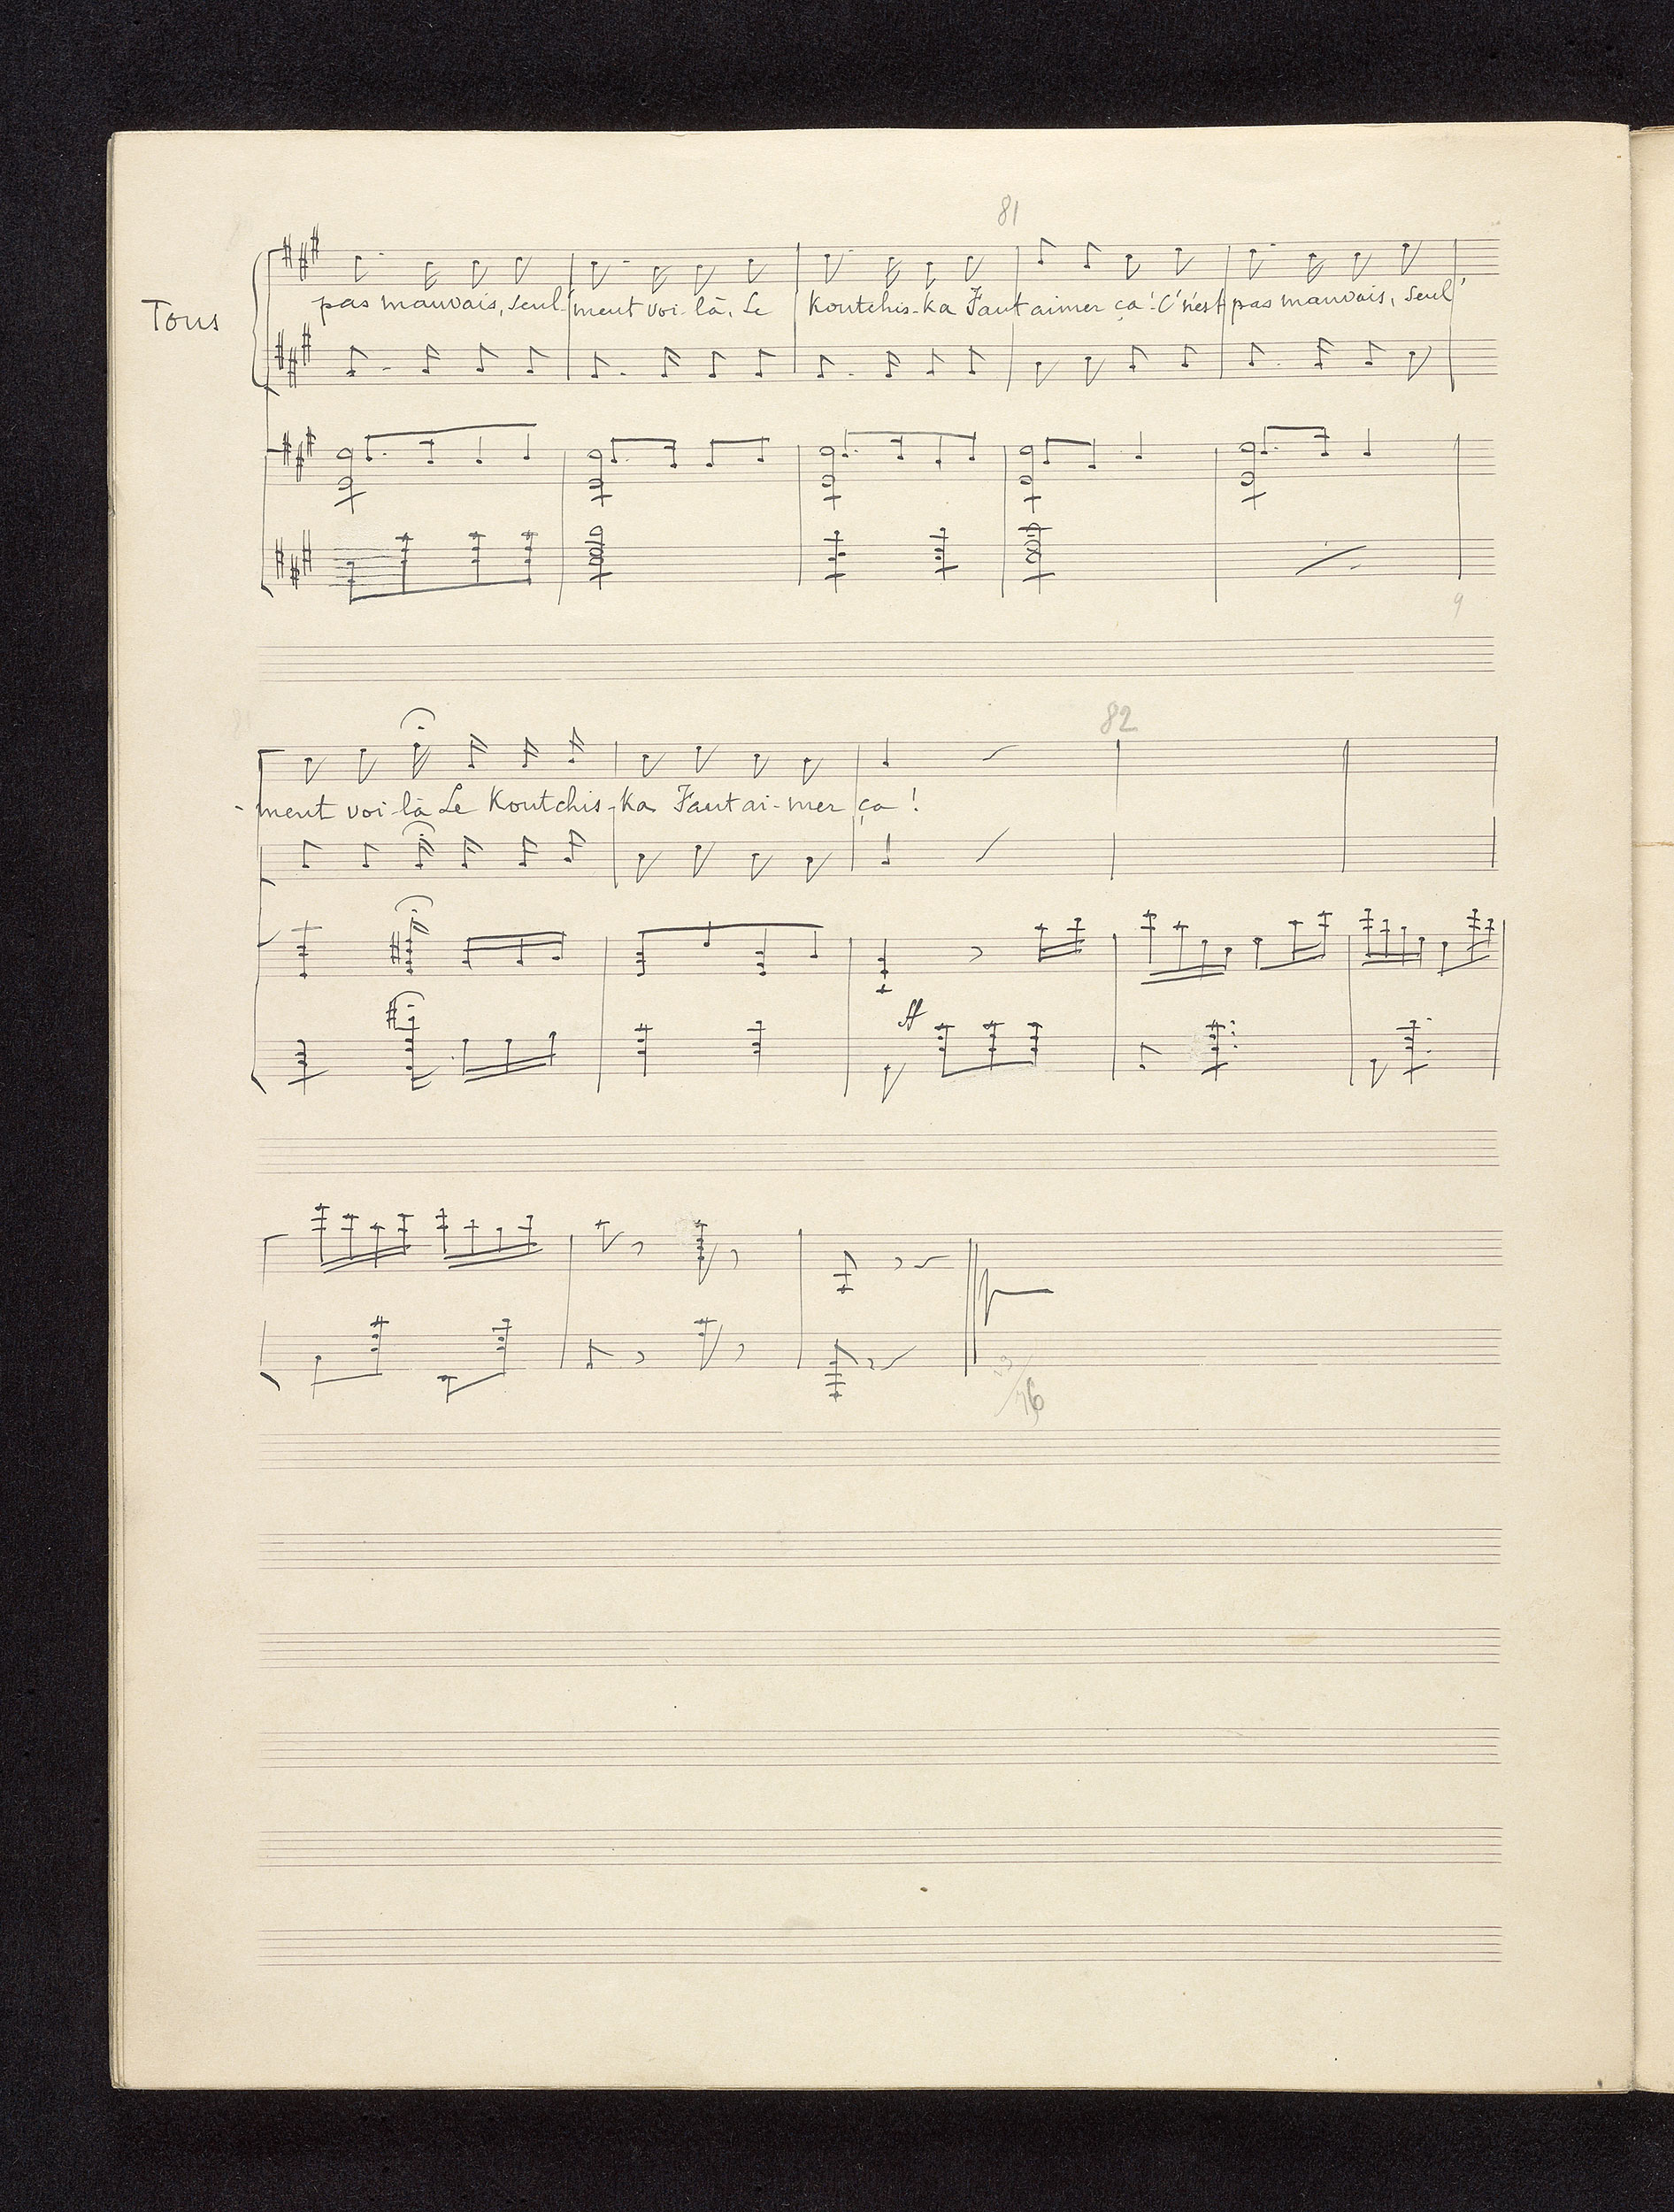 81
Tous
pas mauvais, seul-'ment voi-là, Le Koutchis-ka Faut aimer ça! C'n'est pas mauvais, seul'
9
82
-ment voi-là Le Koutchis-ka Faut ai-mer ça!
ff